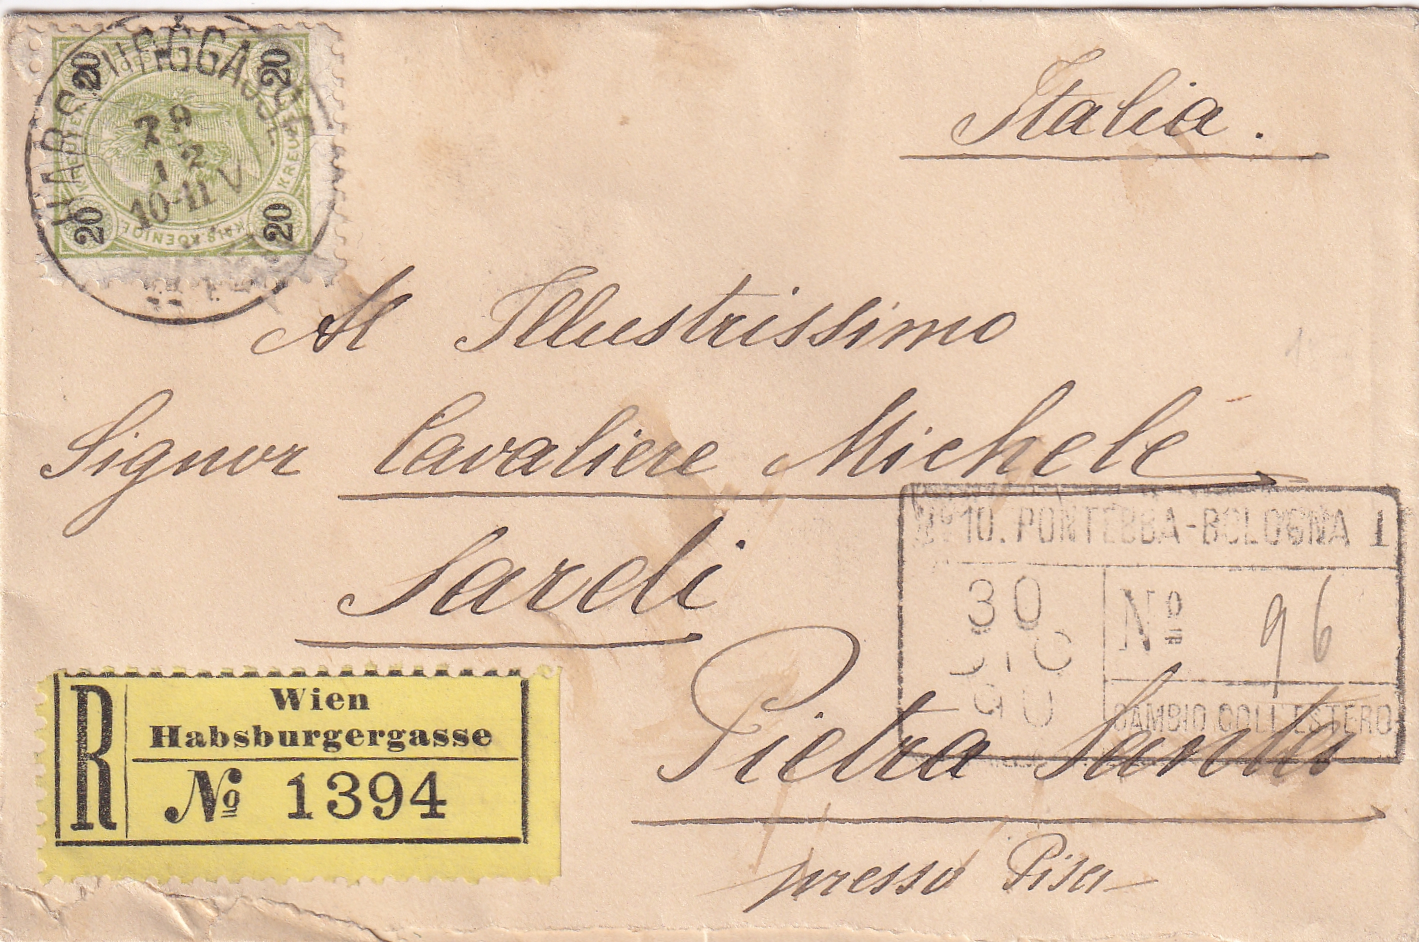 Italia.
20 20
KREUZER
KREUZER
20 20
29
12
10-11 V
Al Illustrissimo
Signor Cavaliere Michele
Sardi
Nº10. PONTEBBA-BOLOGNA 1
30
DIC
90
Nº 96
CAMBIO COLL ESTERO
Pietra Santa
presso Pisa
R
Wien
Habsburgergasse
Nº 1394